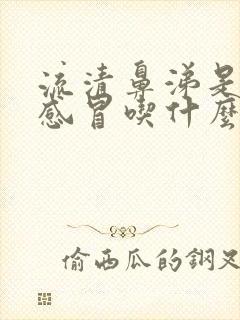 流清鼻涕是
感冒喫什麼
偷西瓜的鋼叉